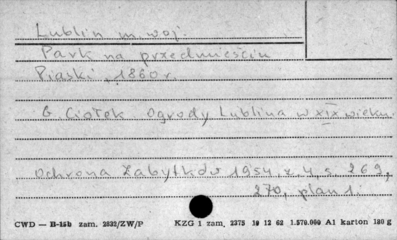 Lublin m. woj.
Park na przedmieściu
Piaski, 1860 r.
G. Ciołek Ogrody Lublina w XIX wieku.
Ochrona Zabytków 1954, z. 4, s. 269,
270, plan 1.
CWD — B-15b zam. 2832/ZW/P KZG 1 zam. 2375 19 12 62 1.570.000 A1 karton 180 g